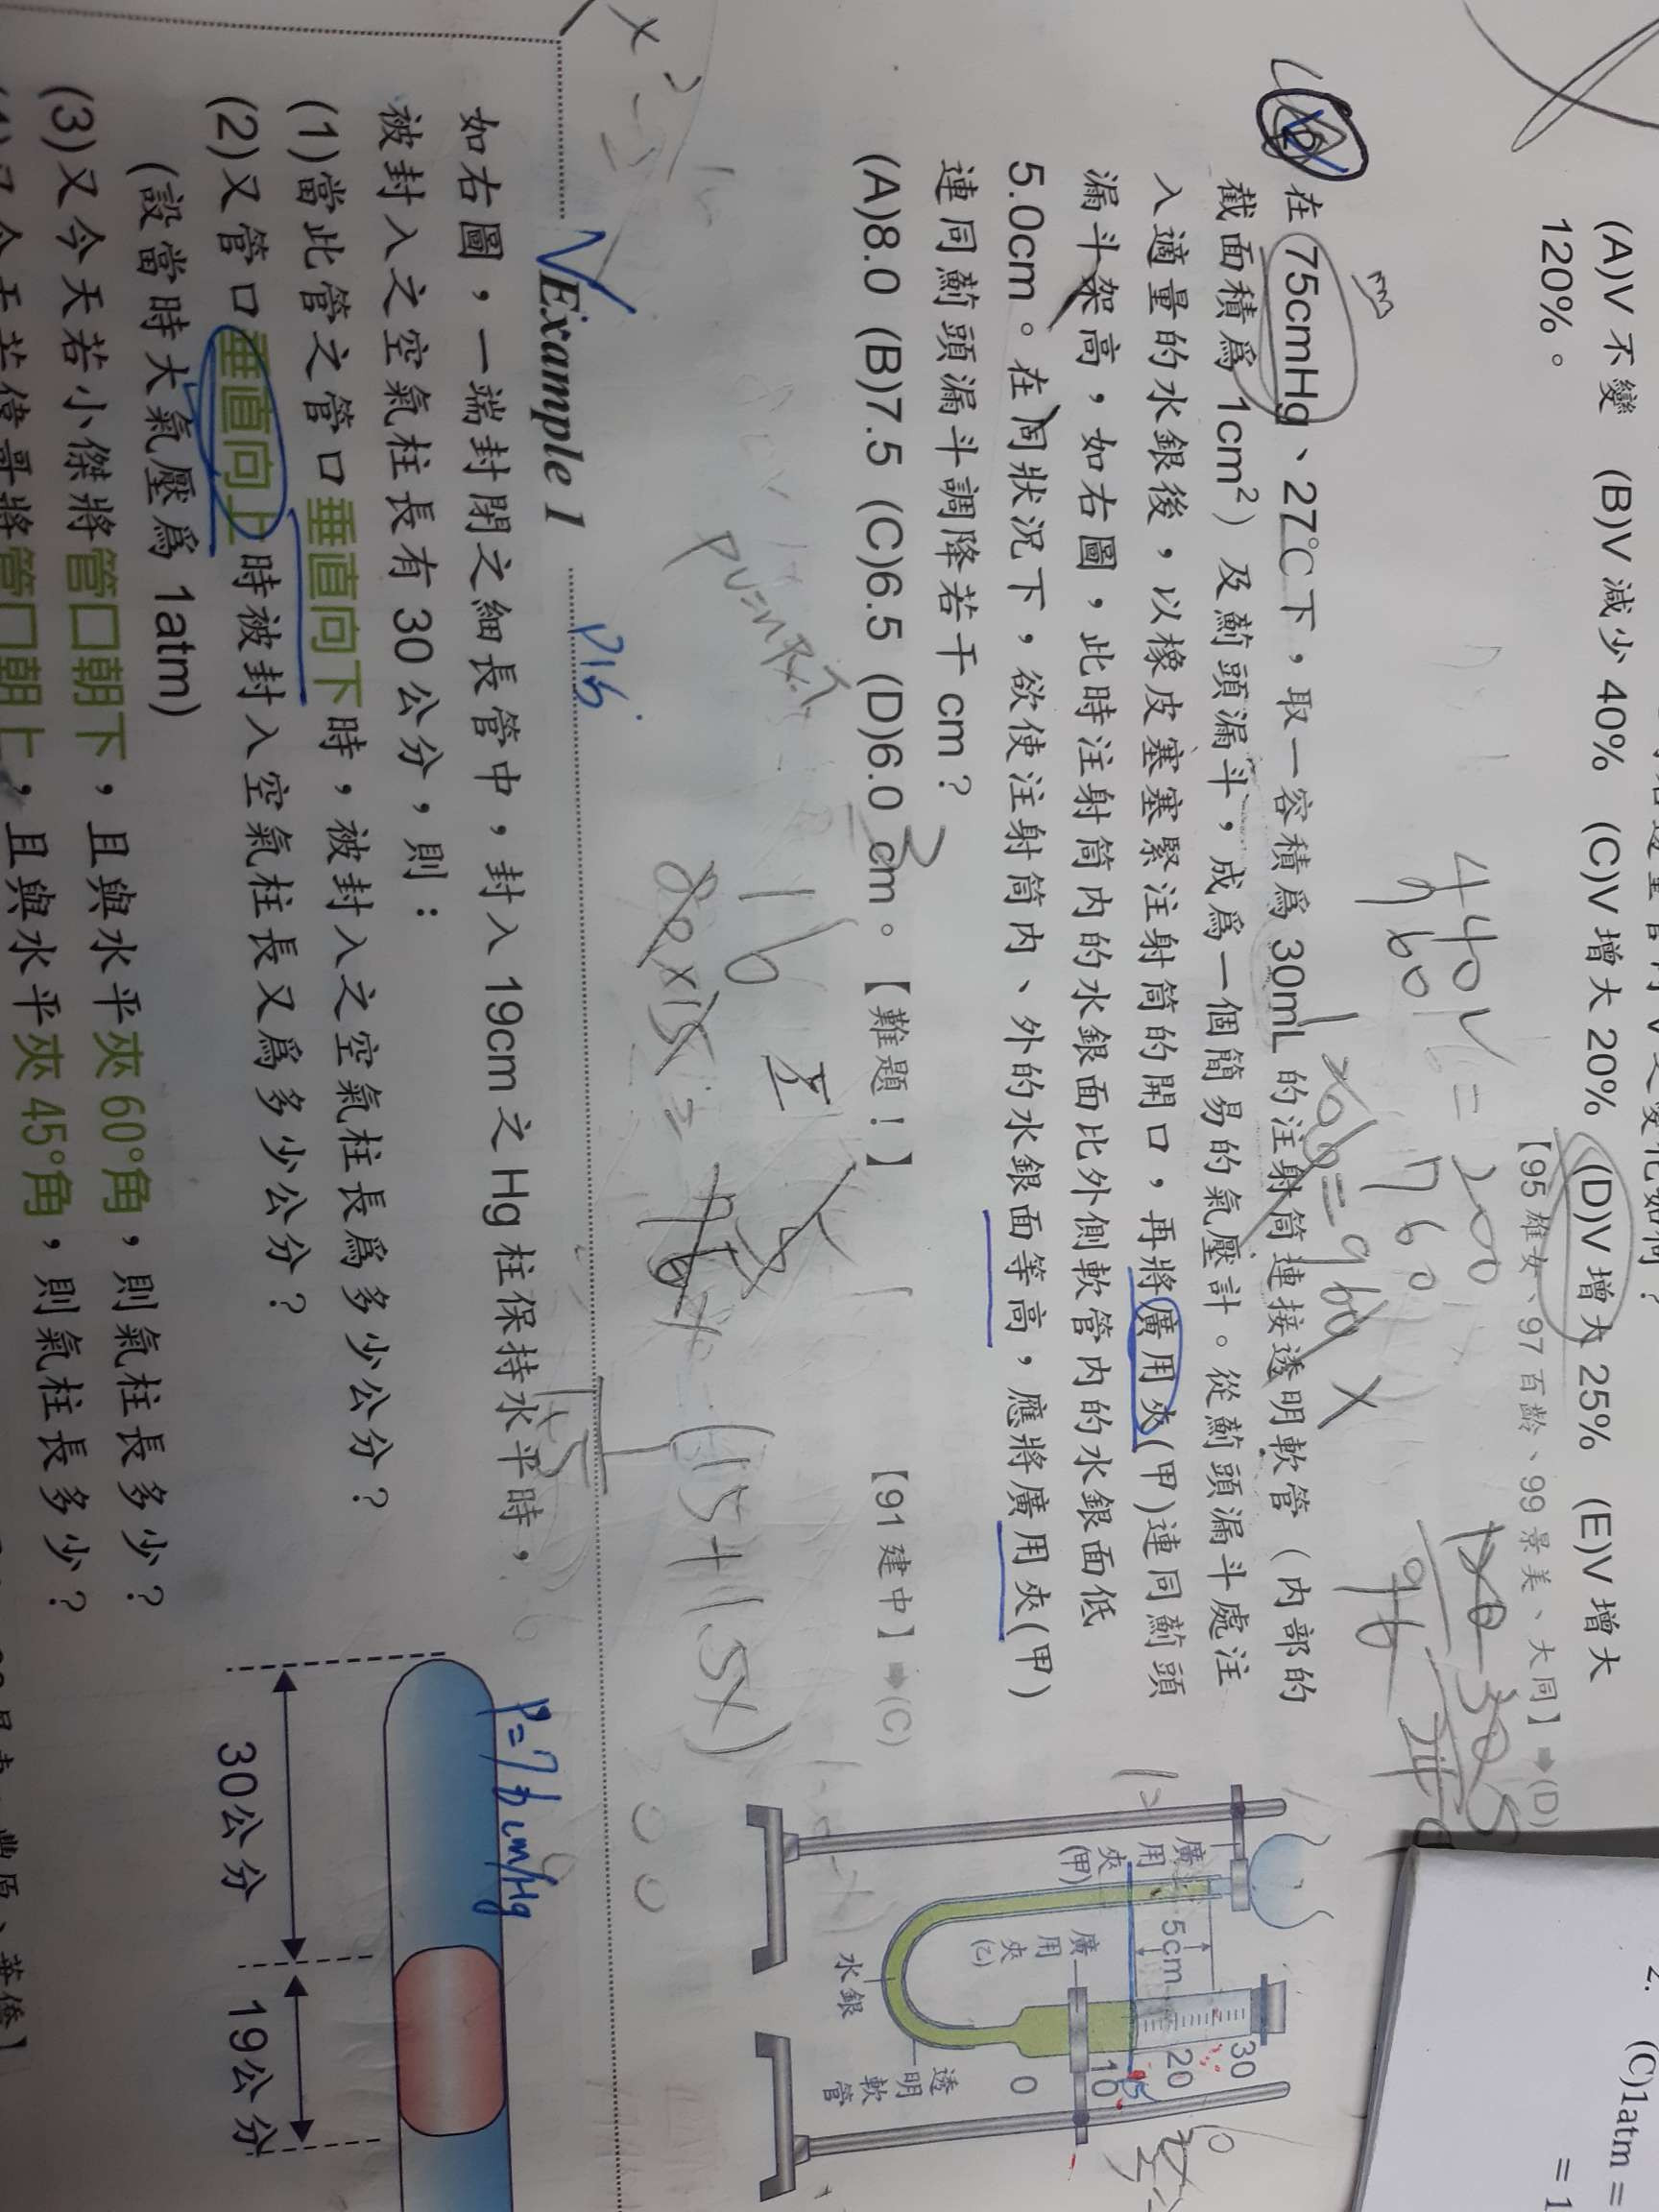 (A)V 不變 (B)V 減少 40% (C)V 增大 20% (D)V 增大 25% (E)V 增大
120%。
【95 雄女、97 百齡、99 景美、大同】➡(D)
440V = 200
760
960
在 75cmHg、27℃下，取一容積爲 30mL 的注射筒連接透明軟管（內部的
截面積爲 1cm²）及薊頭漏斗，成爲一個簡易的氣壓計。從薊頭漏斗處注
入適量的水銀後，以橡皮塞塞緊注射筒的開口，再將廣用夾(甲)連同薊頭
漏斗架高，如右圖，此時注射筒內的水銀面比外側軟管內的水銀面低
5.0cm。在同狀況下，欲使注射筒內、外的水銀面等高，應將廣用夾(甲)
連同薊頭漏斗調降若干 cm？
(A)8.0 (B)7.5 (C)6.5 (D)6.0 cm。【難題！】
【91 建中】➡(C)
廣用夾(甲)
5cm
廣用夾(乙)
水銀
透明軟管
30
20
10
0
15
16
(15+15x)
Example 1
如右圖，一端封閉之細長管中，封入 19cm 之 Hg 柱保持水平時，
被封入之空氣柱長有 30 公分，則：
(1)當此管之管口垂直向下時，被封入之空氣柱長爲多少公分？
(2)又管口垂直向上時被封入空氣柱長又爲多少公分？
(設當時大氣壓爲 1atm)
(3)又今天若小傑將管口朝下，且與水平夾 60°角，則氣柱長多少？
管口朝上，且與水平夾 45°角，則氣柱長多少？
P=76cmHg
30公分
19公分
2.
(C)1atm =
= 1